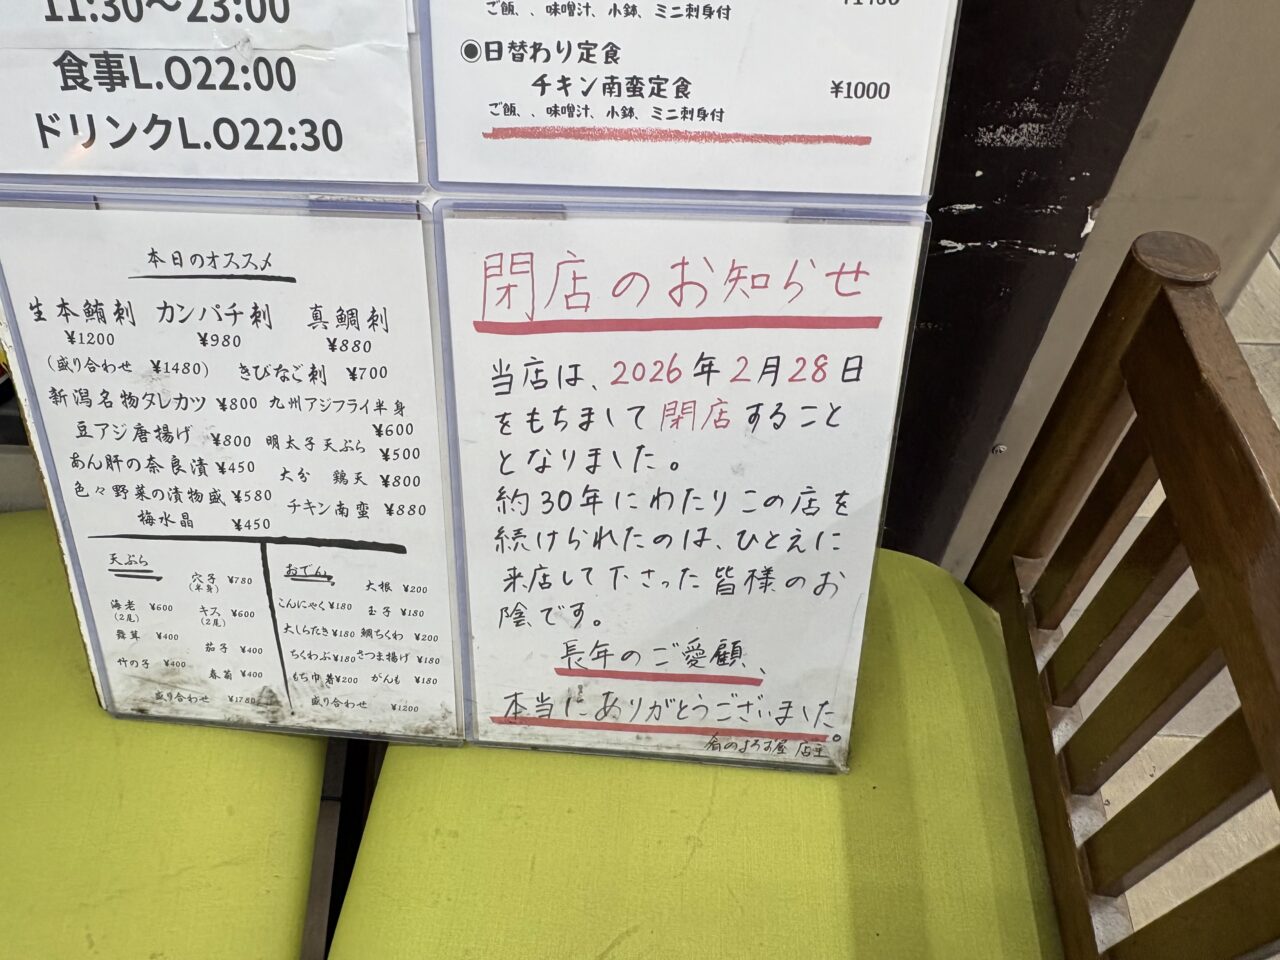 11:30〜23:00
食事L.O22:00
ドリンクL.O22:30
ご飯、、味噌汁、小鉢、ミニ刺身付
◉日替わり定食
チキン南蛮定食 ¥1000
ご飯、、味噌汁、小鉢、ミニ刺身付
本日のオススメ
生本鮪刺 カンパチ刺 真鯛刺
¥1200 ¥980 ¥880
(盛り合わせ ¥1480) きびなご刺 ¥700
新潟名物タレカツ ¥800 九州アジフライ半身
¥600
豆アジ唐揚げ ¥800 明太子天ぷら ¥500
あん肝の奈良漬 ¥450 大分 鶏天 ¥800
色々野菜の漬物盛 ¥580 チキン南蛮 ¥880
梅水晶 ¥450
天ぷら
穴子 ¥780
(半身)
海老 ¥600 キス ¥600
(2尾) (2尾)
舞茸 ¥400
茄子 ¥400
竹の子 ¥400
春菊 ¥400
盛り合わせ ¥1780
おでん
大根 ¥200
こんにゃく ¥180 玉子 ¥180
大しらたき ¥180 鯛ちくわ ¥200
ちくわぶ ¥180 さつま揚げ ¥180
もち巾着 ¥200 がんも ¥180
盛り合わせ ¥1200
閉店のお知らせ
当店は、2026年2月28日
をもちまして閉店すること
となりました。
約30年にわたりこの店を
続けられたのは、ひとえに
来店して下さった皆様のお
陰です。
長年のご愛顧、
本当にありがとうございました。
店主